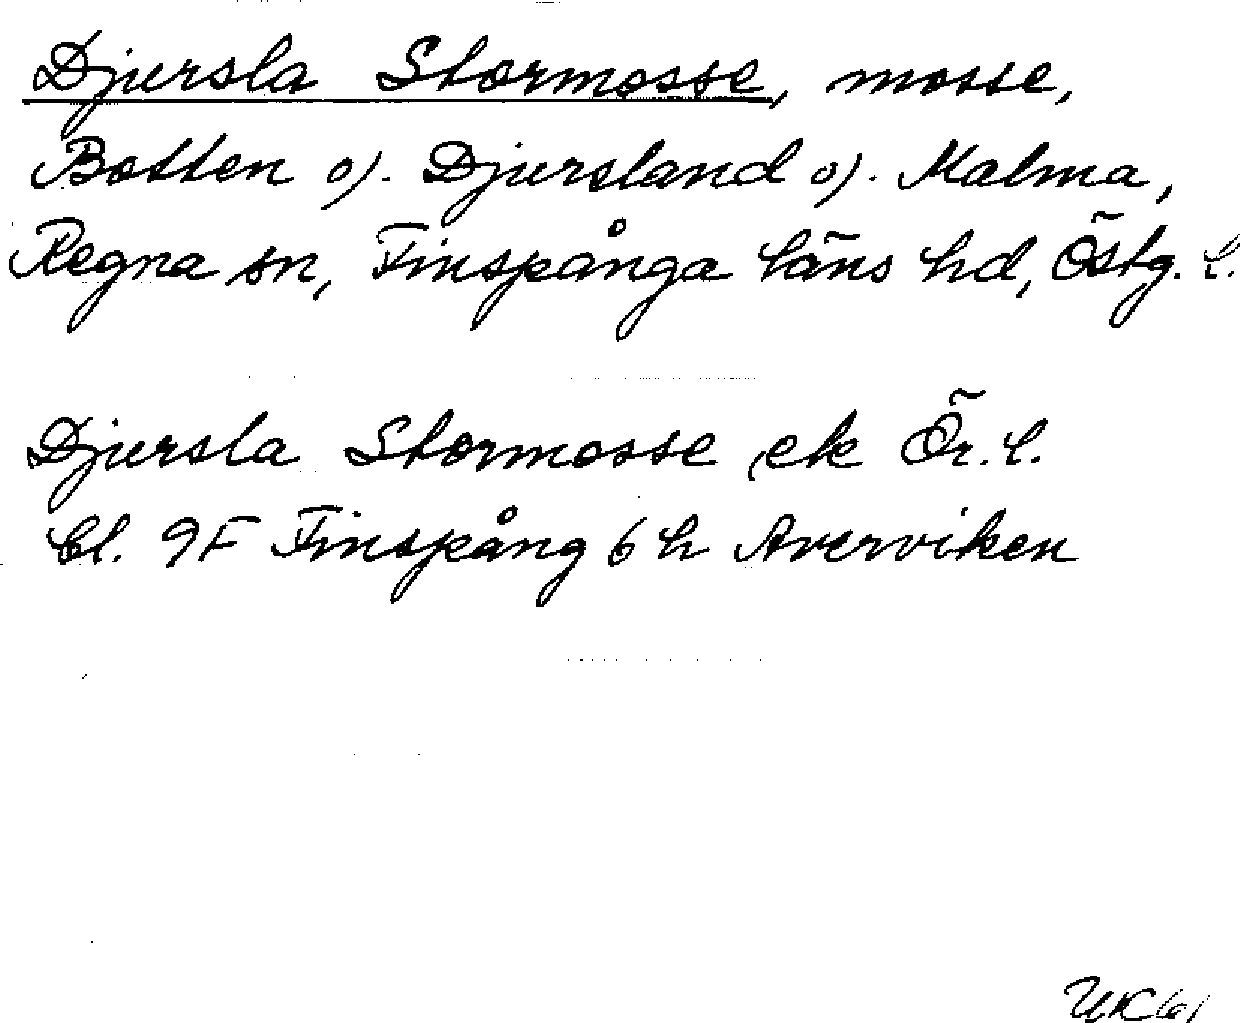 Djursla Stormosse, mosse,
Botten o). Djursland o). Malma,
Regna sn, Finspånga läns hd, Östg. l.
Djursla Stormosse ek Ör. l.
bl. 9F Finspång 6 h Averviken
UK61